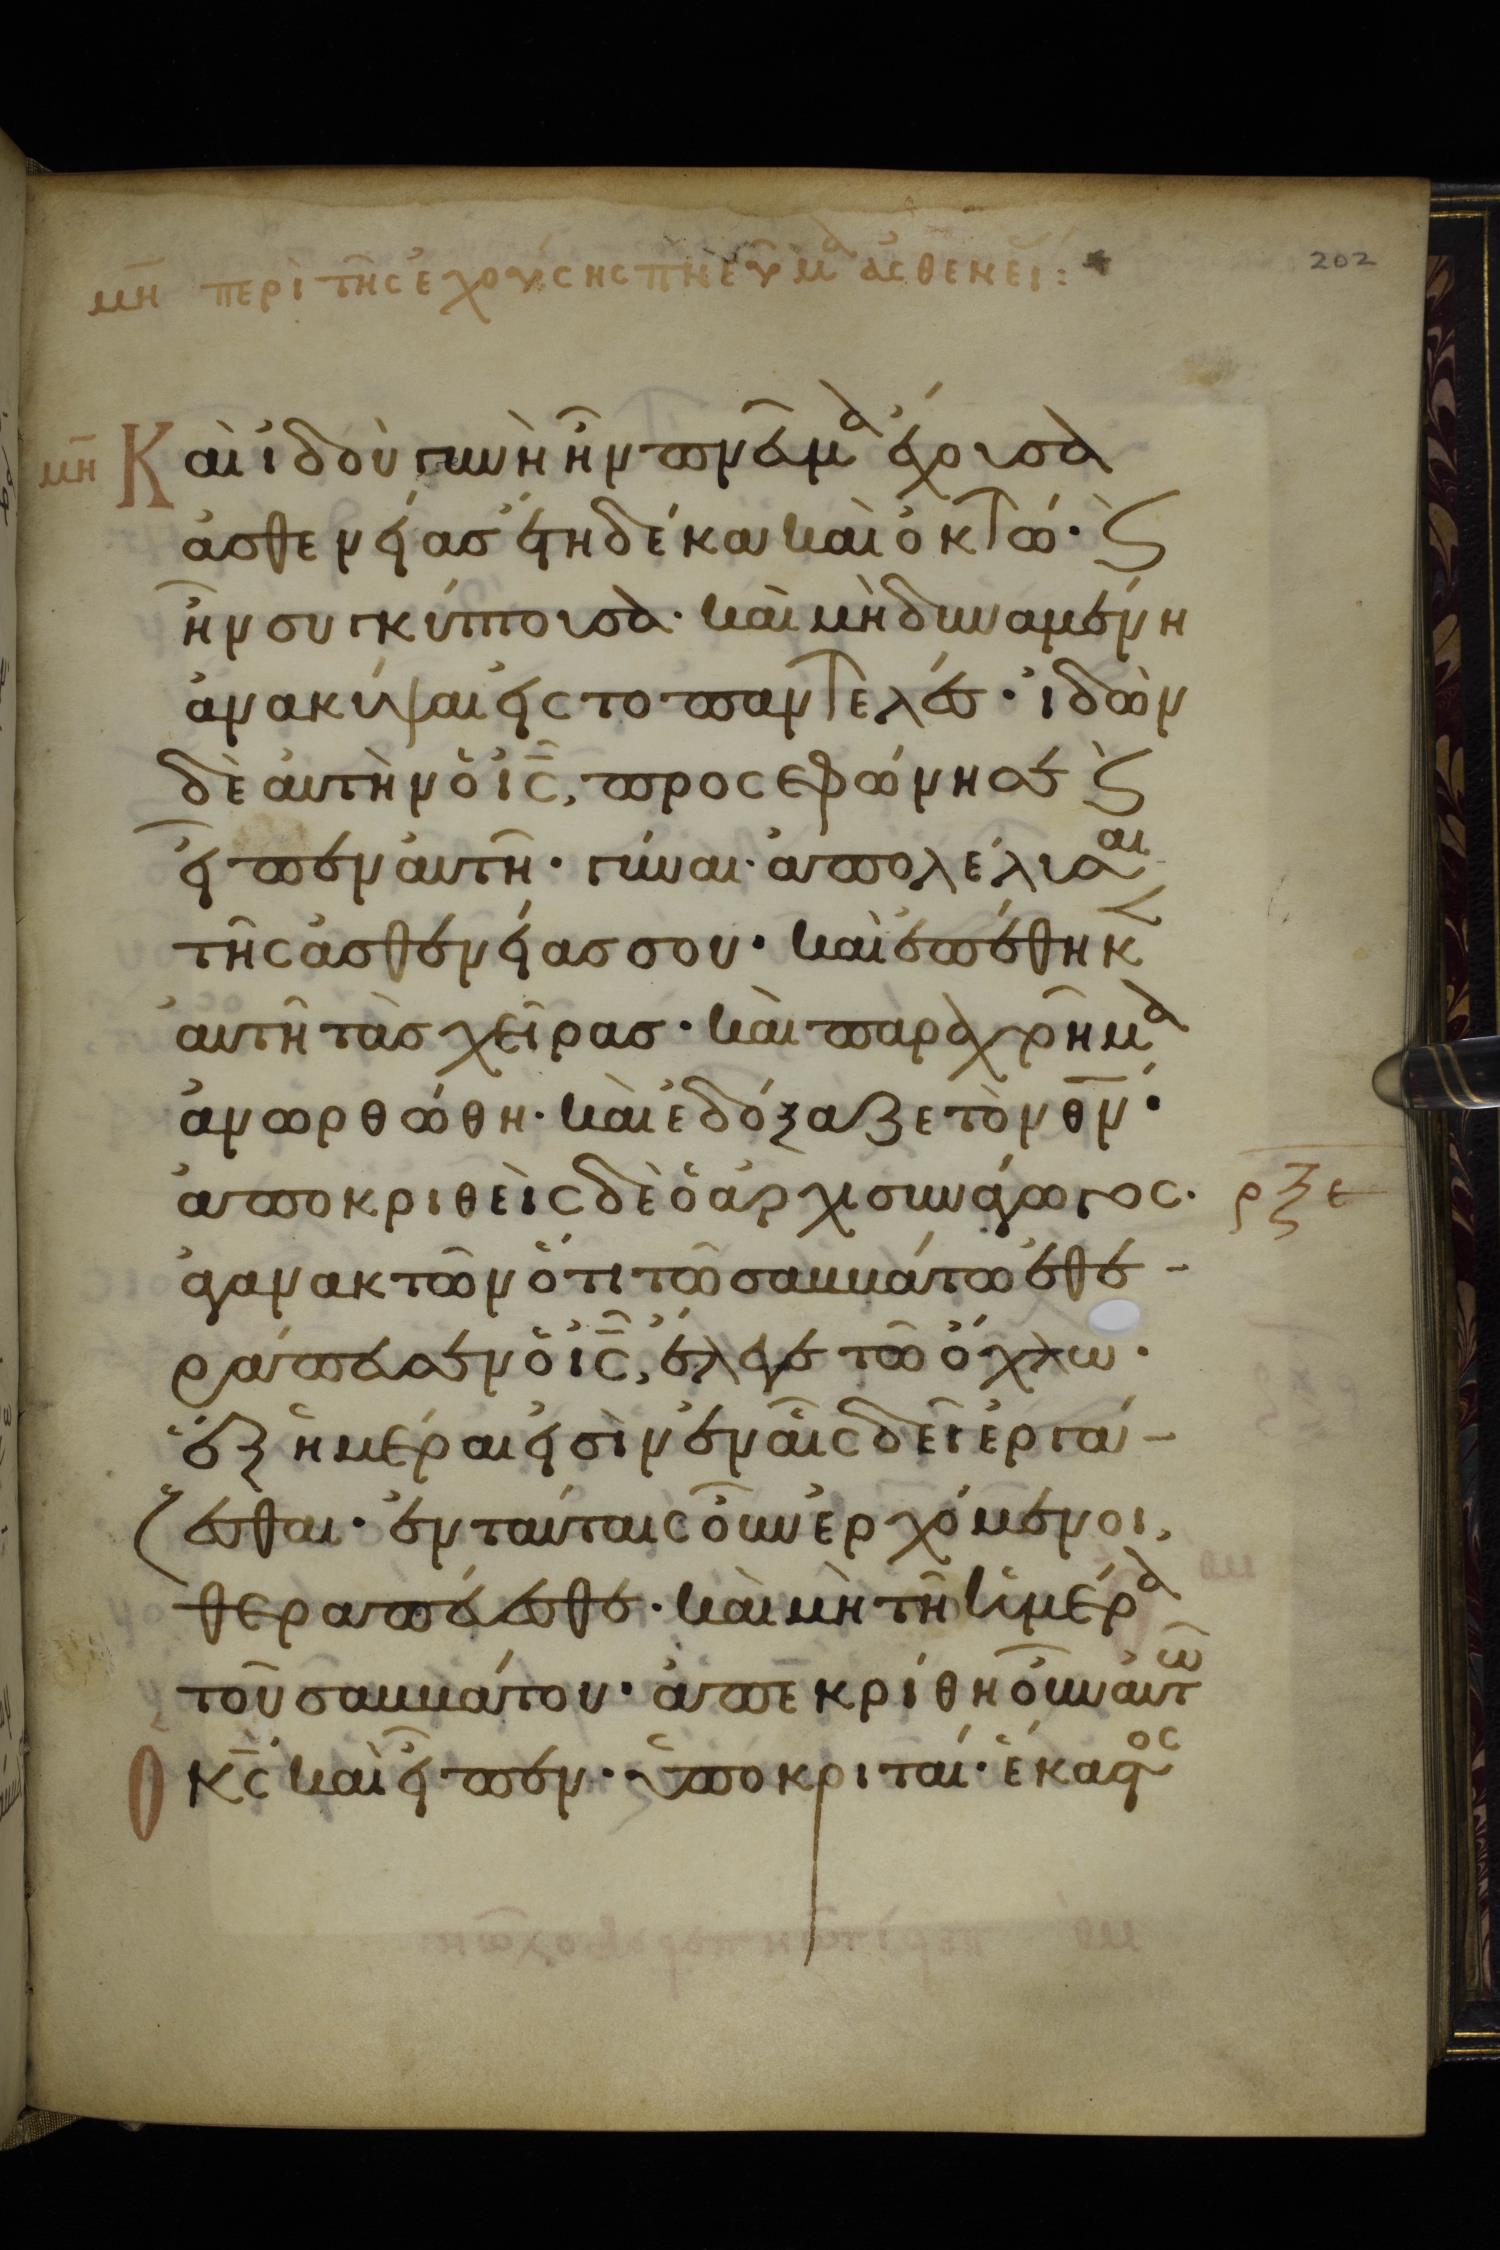 202
μη περὶ τῆς ἐχούσης πνεῦμα ἀσθενεί:
μη Καὶ ἰδοὺ γυνὴ ἦν πνεῦμα ἔχουσα
ἀσθενείας ἔτη δέκα καὶ ὀκτώ·
ἦν συγκύπτουσα· καὶ μὴ δυναμένη
ἀνακύψαι εἰς το παντελές· ἰδὼν
δὲ αὐτὴν ὁ ις, προσεφώνησε
εἶπεν αὐτῆ· γύναι· ἀπολέλυσαι
τῆς ἀσθενείας σου· καὶ ἐπέθηκ
αὐτῆ τὰς χεῖρας· καὶ παραχρῆμα
ἀνωρθώθη· καὶ ἐδόξαζε τὸν θν·
ἀποκριθεὶς δὲ ὁ ἀρχισυνάγωγος· ρξε
ἀγανακτῶν ὅτι τῶ σαββάτω ἐθε-
ράπευσεν ὁ ις, ἔλεγε τῶ ὄχλω·
ἓξ ἡμέραι εἰσὶν ἐν αἷς δεῖ ἐργά-
ζεσθαι· ἐν ταύταις οὖν ἐρχόμενοι,
θεραπεύεσθε· καὶ μὴ τῆ ἡμέρα
τοῦ σαββάτου· ἀπεκρίθη οὖν αὐτῶ
Ο κς καὶ εἶπεν· ὑποκριταί· ἕκαστος